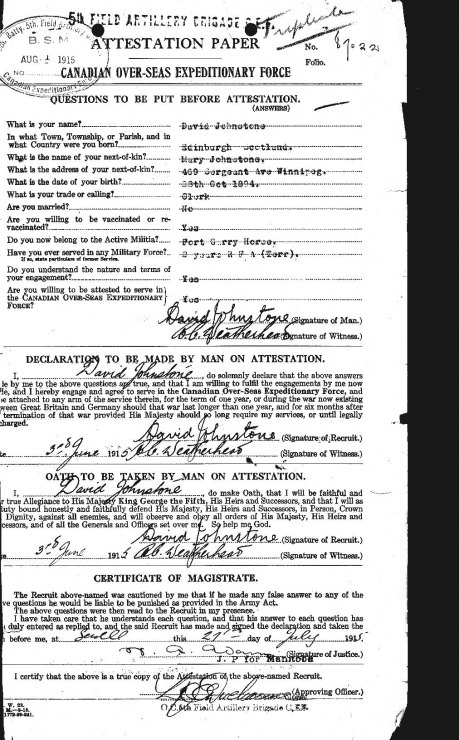 5th FIELD ARTILLERY BRIGADE C.E.F.
Triplicate
Batty. 5th. Field Artillery
B. S. M
AUG 1 1915
NO.
Canadian Expeditionary
ATTESTATION PAPER
No.
Folio.
CANADIAN OVER-SEAS EXPEDITIONARY FORCE
QUESTIONS TO BE PUT BEFORE ATTESTATION.
(ANSWERS)
What is your name? David Johnstone
In what Town, Township, or Parish, and in
what Country were you born? Edinburgh Scotland.
What is the name of your next-of-kin? Mary Johnstone.
What is the address of your next-of-kin? 469 Sargent Ave Winnipeg.
What is the date of your birth? Oct 1894.
What is your trade or calling? Clerk
Are you married? No
Are you willing to be vaccinated or re-
vaccinated? Yes
Do you now belong to the Active Militia? Fort Garry Horse.
Have you ever served in any Military Force? 2 years R F A (Terr).
If so, state particulars of former Service.
Do you understand the nature and terms of
your engagement? Yes
Are you willing to be attested to serve in
the CANADIAN OVER-SEAS EXPEDITIONARY
FORCE? Yes
David Johnstone (Signature of Man.)
C. Weatherhead (Signature of Witness.)
DECLARATION TO BE MADE BY MAN ON ATTESTATION.
I, David Johnstone, do solemnly declare that the above answers
le by me to the above questions are true, and that I am willing to fulfil the engagements by me now
le, and I hereby engage and agree to serve in the Canadian Over-Seas Expeditionary Force, and
e attached to any arm of the service therein, for the term of one year, or during the war now existing
ween Great Britain and Germany should that war last longer than one year, and for six months after
termination of that war provided His Majesty should so long require my services, or until legally
charged.
David Johnstone (Signature of Recruit.)
3rd June 1915 C. Weatherhead (Signature of Witness.)
OATH TO BE TAKEN BY MAN ON ATTESTATION.
I, David Johnstone, do make Oath, that I will be faithful and
r true Allegiance to His Majesty King George the Fifth, His Heirs and Successors, and that I will as
uty bound honestly and faithfully defend His Majesty, His Heirs and Successors, in Person, Crown
Dignity, against all enemies, and will observe and obey all orders of His Majesty, His Heirs and
cessors, and of all the Generals and Officers set over me. So help me God.
David Johnstone (Signature of Recruit.)
3rd June 1915 C. Weatherhead (Signature of Witness.)
CERTIFICATE OF MAGISTRATE.
The Recruit above-named was cautioned by me that if he made any false answer to any of the
ve questions he would be liable to be punished as provided in the Army Act.
The above questions were then read to the Recruit in my presence.
I have taken care that he understands each question, and that his answer to each question has
duly entered as replied to, and the said Recruit has made and signed the declaration and taken the
before me, at Sewell this 21st day of July 1915.
(Signature of Justice.)
J. P for Manitoba
I certify that the above is a true copy of the Attestation of the above-named Recruit.
(Approving Officer.)
O.C. 5th Field Artillery Brigade C.E.F.
W. 23.